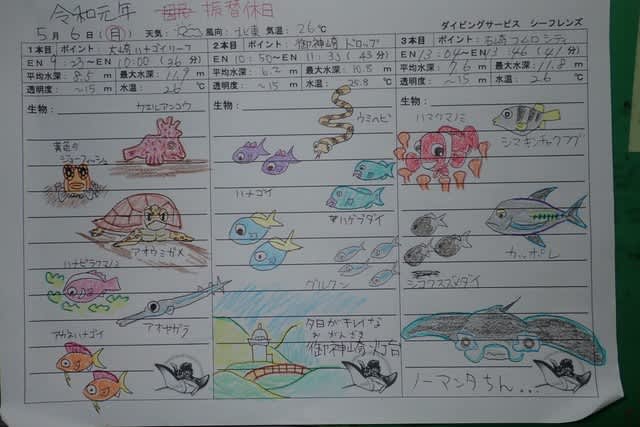 令和元年 振替休日
5月6日(月) 天気: 風向:北東 気温:26℃
ダイビングサービス シーフレンズ
1本目 ポイント:大崎ハナゴイリーフ
EN 9:23~EN 10:00 (36分)
平均水深: 8.5 m 最大水深: 11.9 m
透明度: ~15 m 水温: 26 ℃
生物:
カエルアンコウ
黄色の
ジョーフィッシュ
アオウミガメ
ハナビラクマノミ
アオヤガラ
アカネハナゴイ
2本目 ポイント:御神崎ドロップ
EN 10:50~EN 11:33 (43分)
平均水深: 6.2 m 最大水深: 10.8 m
透明度: ~15 m 水温: 25.8 ℃
生物:
ウミヘビ
ハナゴイ
ハゲブダイ
グルクン
夕日がキレイな
おがんざき
御神崎灯台
3本目 ポイント:石崎マンタシティ
EN 13:04~EN 13:46 (41分)
平均水深: 7.6 m 最大水深: 11.8 m
透明度: ~15 m 水温: 26 ℃
生物:
ハマクマノミ
シマキンチャクフグ
カッポレ
シコクスズメダイ
ノーマンタちん...